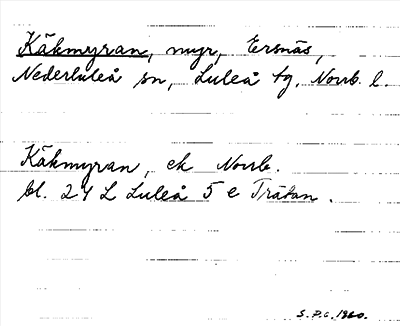 Käkmyran, myr, Ersnäs,
Nederluleå sn, Luleå tg, Norrb. l.
Käkmyran, ek Norrb.
bl. 24 L Luleå 5 e Träfan.
S.P.G. 1960.